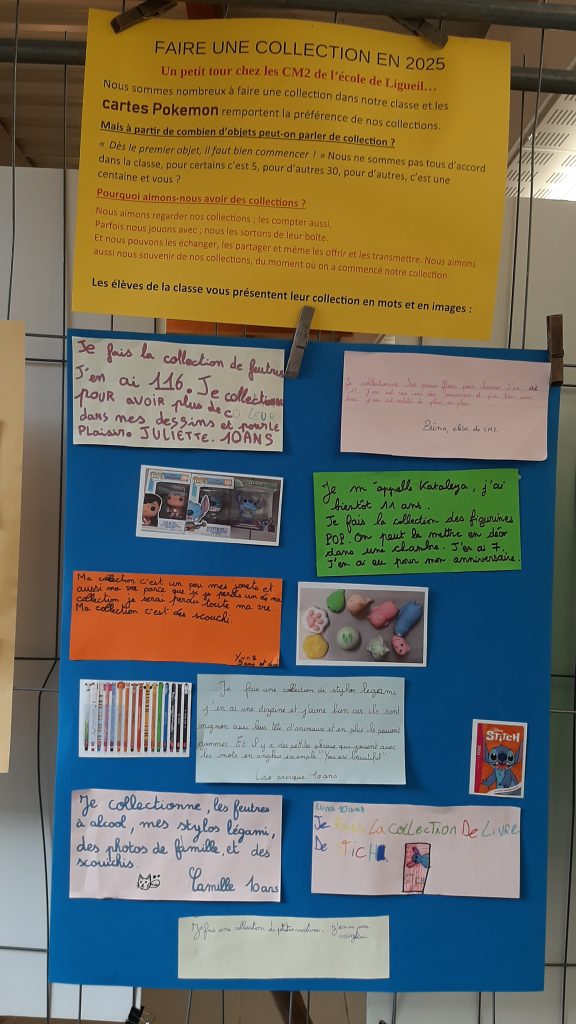 FAIRE UNE COLLECTION EN 2025
Un petit tour chez les CM2 de l'école de Ligueil…
Nous sommes nombreux à faire une collection dans notre classe et les
cartes Pokemon remportent la préférence de nos collections.
Mais à partir de combien d'objets peut-on parler de collection ?
« Dès le premier objet, il faut bien commencer ! » Nous ne sommes pas tous d'accord
dans la classe, pour certains c'est 5, pour d'autres 30, pour d'autres, c'est une
centaine et vous ?
Pourquoi aimons-nous avoir des collections ?
Nous aimons regarder nos collections ; les compter aussi.
Parfois nous jouons avec ; nous les sortons de leur boîte.
Et nous pouvons les échanger, les partager et même les offrir et les transmettre. Nous aimons
aussi nous souvenir de nos collections, du moment où on a commencé notre collection.
Les élèves de la classe vous présentent leur collection en mots et en images :
Je fais la collection de feutres
J'en ai 116. Je collectionne
pour avoir plus de COULEURS
dans mes dessins et pour le
Plaisir. JULIETTE. 10ANS
Je collectionne
élève de CM2
Je m'appelle Kataleya, j'ai
bientôt 11 ans.
Je fais la collection des figurines
POP. On peut la mettre en déco
dans une chambre. J'en ai 7.
J'en ai eu pour mon anniversaire.
Ma collection c'est un peu mes jouets et
aussi ma vie parce que si je perds un de ma
collection je serai perdu toute ma vie.
Ma collection c'est des scouichi.
Je fais une collection de stylos legami
j'en ai une dizaine et j'aime bien car ils sont
mignon avec leur tête d'animaux et en plus ils peuvent
gommer. Et il y a des petits phrase qui jouent avec
les mots en anglais exemple "You are beautiful"
Lise presque 10 ans
STITCH
Je collectionne, les feutres
à alcool, mes stylos légami,
des photos de famille, et des
scouichis.
Camille 10 ans
Luna 10 ans
Je Fais La COLLECTION De LIVRE
De STICH
Je fais une collection de petites voitures. J'en ai une